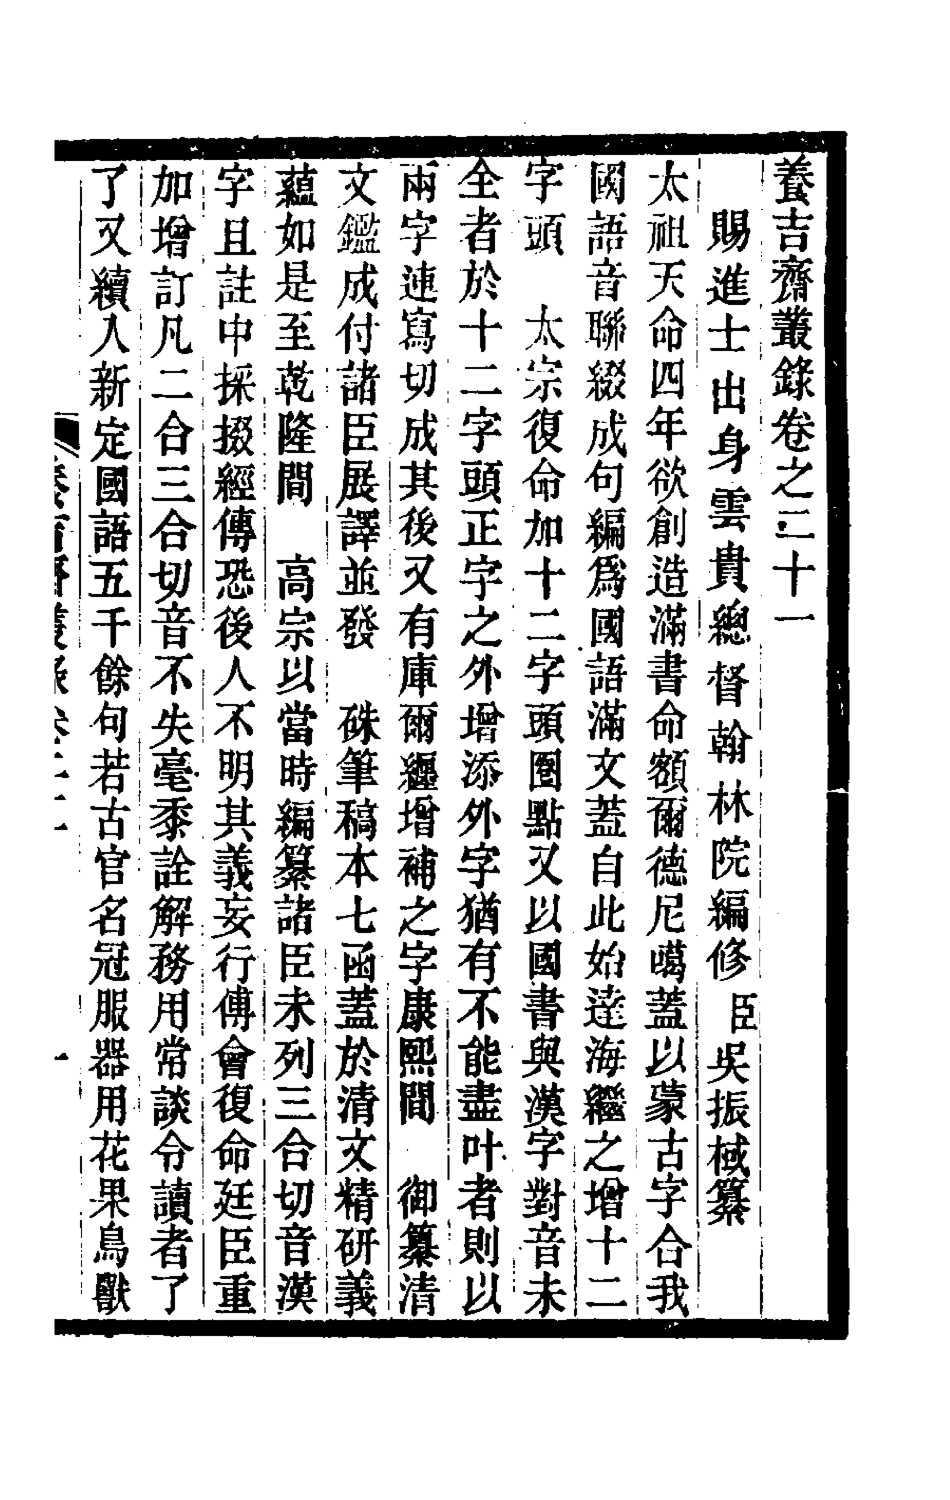 養吉齋叢錄卷之二十一
賜進士出身雲貴總督翰林院編修 臣吳振棫纂
太祖天命四年欲創造滿書命額爾德尼噶蓋以蒙古字合我
國語音聯綴成句編爲國語滿文蓋自此始達海繼之增十二
字頭 太宗復命加十二字頭圈點又以國書與漢字對音未
全者於十二字頭正字之外增添外字猶有不能盡叶者則以
兩字連寫切成其後又有庫爾纏增補之字康熙間 御纂清
文鑑成付諸臣展譯並發 硃筆稿本七函蓋於清文精研義
蘊如是至乾隆間 高宗以當時編纂諸臣未列三合切音漢
字且註中採掇經傳恐後人不明其義妄行傅會復命廷臣重
加增訂凡二合三合切音不失毫黍詮解務用常談令讀者了
了又續入新定國語五千餘句若古官名冠服器用花果鳥獸